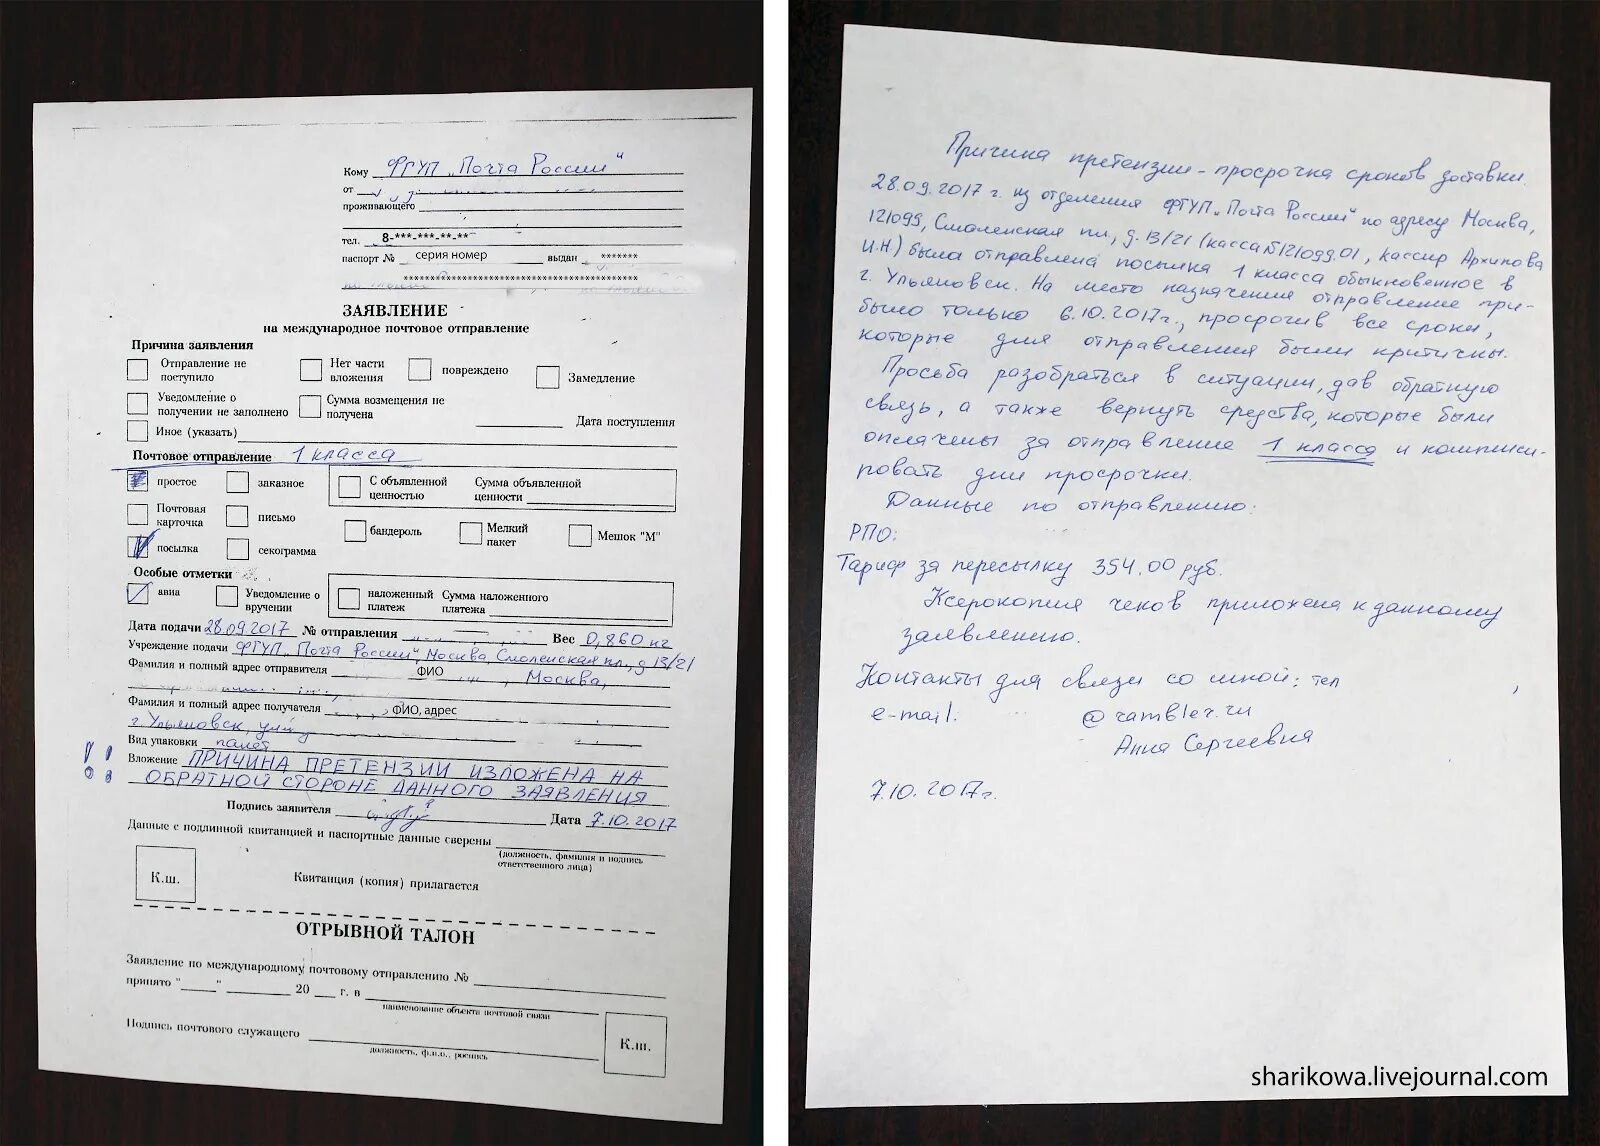 Кому ФГУП „Почта России"
от
проживающего
тел. 8-***-***-**-**
паспорт № серия номер выдан *******
************************************
ЗАЯВЛЕНИЕ
на международное почтовое отправление
Причина заявления
Отправление не поступило
Нет части вложения
повреждено
Замедление
Уведомление о получении не заполнено
Сумма возмещения не получена
Дата поступления
Иное (указать)
Почтовое отправление 1 класса
простое
заказное
С объявленной ценностью
Сумма объявленной ценности
Почтовая карточка
письмо
бандероль
Мелкий пакет
Мешок "М"
посылка
секограмма
Особые отметки
авиа
Уведомление о вручении
наложенный платеж
Сумма наложенного платежа
Дата подачи 28.09.2017 № отправления Вес 0,860 кг
Учреждение подачи ФГУП „Почта России", Москва, Смоленская пл., д 13/21
Фамилия и полный адрес отправителя ФИО
Москва,
Фамилия и полный адрес получателя ФИО, адрес
г. Ульяновск,
Вид упаковки пакет
!! Вложение ПРИЧИНА ПРЕТЕНЗИИ ИЗЛОЖЕНА НА
ОБРАТНОЙ СТОРОНЕ ДАННОГО ЗАЯВЛЕНИЯ
Подпись заявителя Дата 7.10.2017
Данные с подлинной квитанцией и паспортные данные сверены
(должность, фамилия и подпись
ответственного лица)
К.ш.
Квитанция (копия) прилагается
ОТРЫВНОЙ ТАЛОН
Заявление по международному почтовому отправлению №
принято "____" ________ 20 __ г. в
наименование объекта почтовой связи
Подпись почтового служащего
должность, ф.и.о., роспись
К.ш.
Причина претензии - просрочка сроков доставки.
28.09.2017 г. из отделения ФГУП „Почта России" по адресу Москва,
121099, Смоленская пл, д. 13/21 (касса №121099.01, кассир Архипова
И.Н.) была отправлена посылка 1 класса обыкновенное в
г. Ульяновск. На место назначения отправление при-
было только 6.10.2017г., просрочив все сроки,
которые для отправления были критичны.
Просьба разобраться в ситуации, дав обратную
связь, а также вернуть средства, которые были
оплачены за отправление 1 класса и компенси-
ровать дни просрочки.
Данные по отправлению:
РПО:
Тариф за пересылку 354.00 руб.
Ксерокопия чеков приложена к данному
заявлению.
Контакты для связи со мной: тел
e-mail: @rambler.ru
Анна Сергеевна
7.10.2017г.
sharikowa.livejournal.com